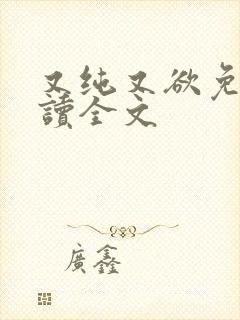 又纯又欲免
讀全文
廣鑫